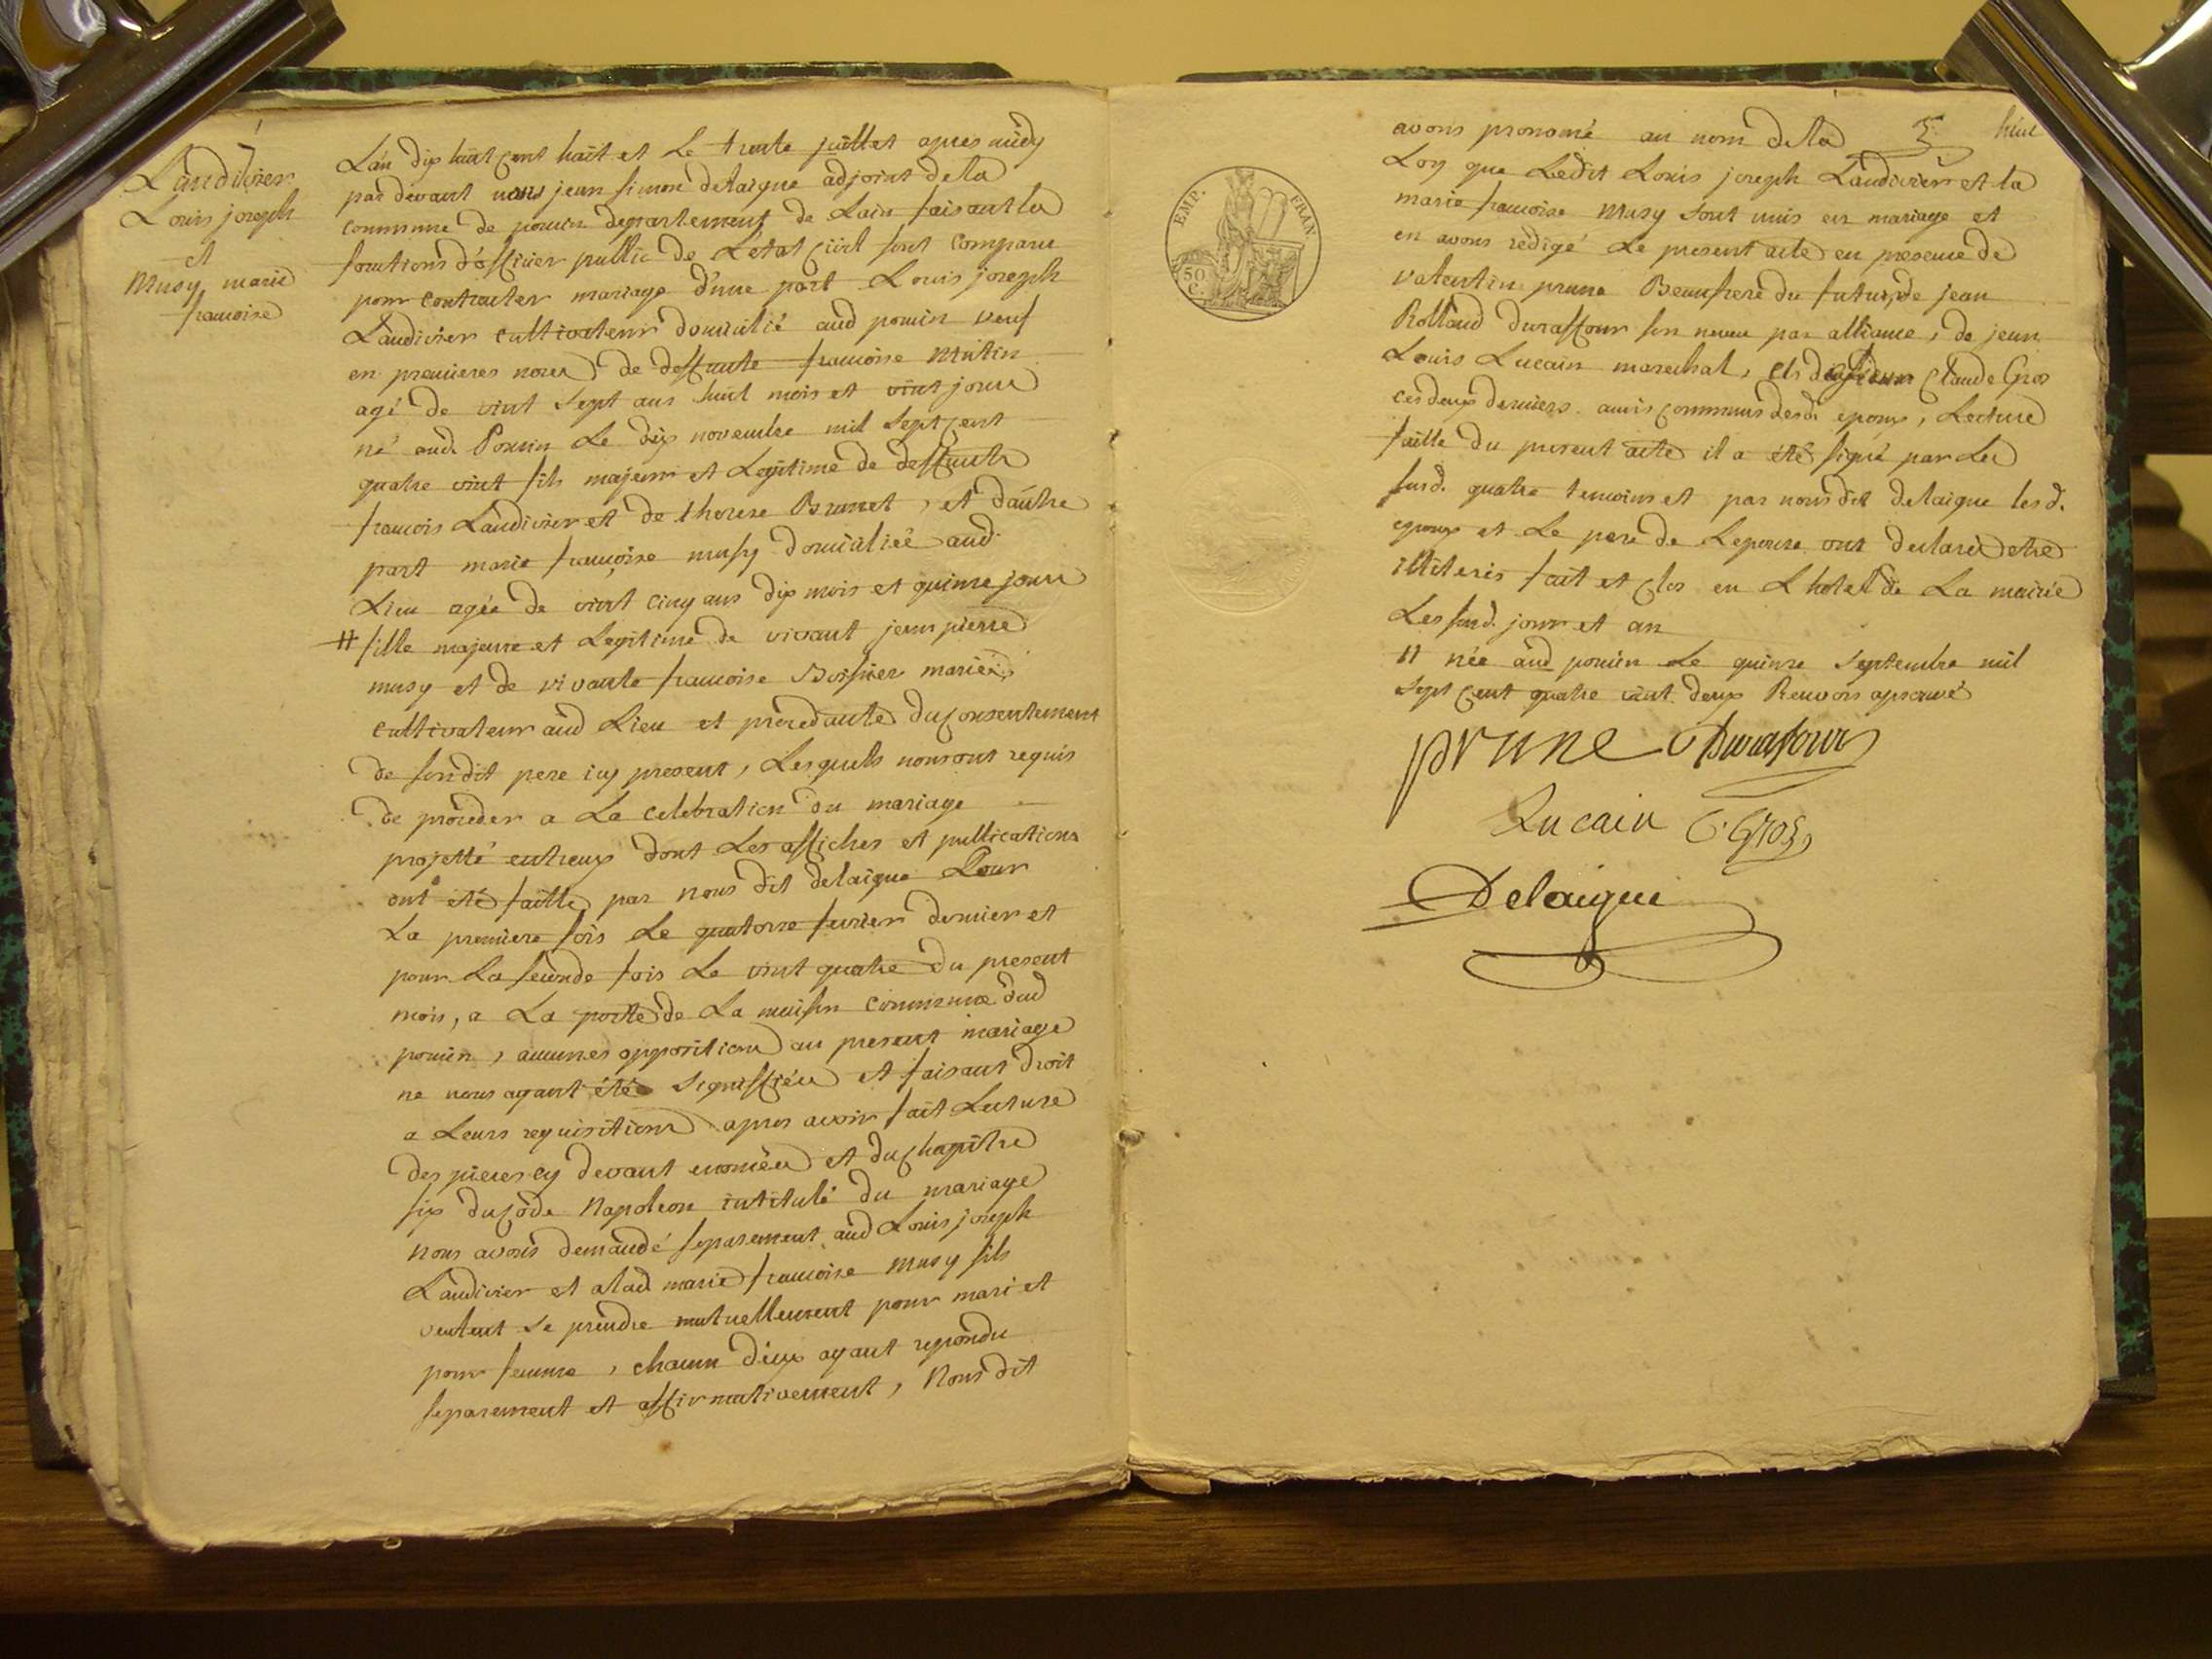 Laudivier
Louis joseph
et
Musy marie
francoise
L'an dix huit cent huit et Le trente juillet apres midy
par devant nous jean simon delaigue adjoint de la
commune de poncin departement de Lain faisant les
fonctions d'officier public de L'etat civil sont comparu
pour contracter mariage d'une part Louis joseph
Laudivier cultivateur domicilié aud poncin veuf
en premieres noces de deffunte francoise Mutin
agé de vint sept ans huit mois et vint jours
né aud. Poncin Le dix novembre mil sept cent
quatre vint fils majeur et Legitime de deffunts
francois Laudivier et de therese Brunet, et d'autre
part marie francoise musy domiciliée aud.
Lieu agée de vint cinq ans dix mois et quinze jours
# fille majeure et Legitime de vivant jean pierre
musy et de vivante francoise Boissier mariés
cultivateur aud Lieu et procedante du consentement
de sondit pere icy present, Lesquels nous ont requis
de proceder a La celebration du mariage
projetté entreux dont Les affiches et publications
ont été faittes par nous dit delaigue Pour
La premiere fois Le quatorze fevrier dernier et
pour La seconde fois Le vint quatre du present
mois, a La porte de La maison commune dud
poncin, aucunes oppositions au present mariage
ne nous ayant été signiffiées et faisant droit
a Leurs requisitions apres avoir fait Lecture
des pieces cy devant enoncées et du chapitre
six du code Napoleon intitulé du mariage
nous avons demandé separement aud Louis joseph
Laudivier et a lad marie francoise Musy sils
veulent se prendre mutuellement pour mari et
pour femme, chacun d'eux ayant repondu
separement et affirmativement, Nous dit
huit
avons prononcé au nom de la
Loy que Ledit Louis joseph Laudivier et la
marie francoise Musy sont unis en mariage et
en avons redigé Le present acte en presence de
valentin prune Beaufrere du futur, de jean
Rolland duraffour son neveu par alliance, de jean
Louis Lucain marechal, et de Claude Gros
ces deux derniers amis communs desd. epoux, Lecture
faitte du present acte il a été signé par Les
susd. quatre temoins et par nous dit delaigue lesd.
epoux et Le pere de Lepouse ont declaré etre
illiterés fait et clos en L'hotel de La mairie
Les susd. jour et an
# née aud poncin Le quinze septembre mil
sept cent quatre vint deux Renvois approuvé
prune Duraffour
Lucain C. Gros
Delaigue
EMP. FRAN
50
C.